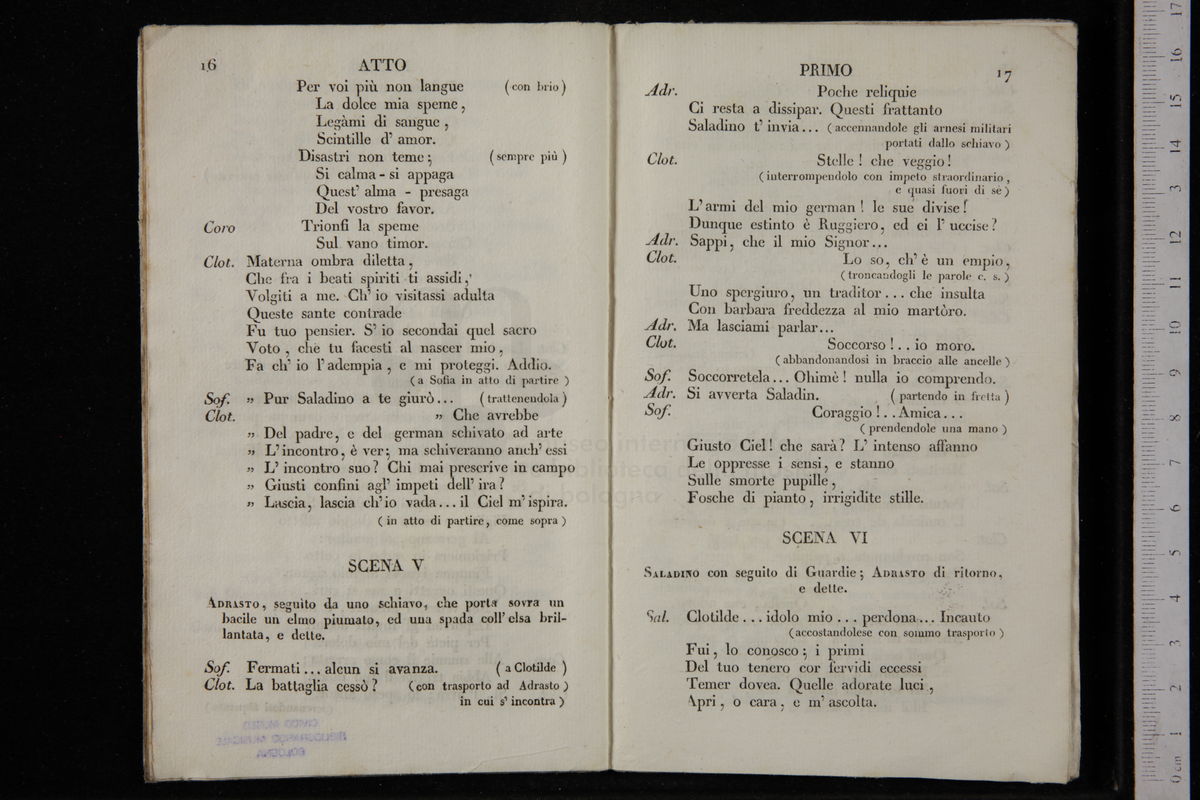 16 ATTO
Per voi più non langue (con brio)
La dolce mia speme,
Legàmi di sangue,
Scintille d' amor.
Disastri non teme; (sempre più)
Si calma - si appaga
Quest' alma - presaga
Del vostro favor.
Coro Trionfi la speme
Sul vano timor.
Clot. Materna ombra diletta,
Che fra i beati spiriti ti assidi,
Volgiti a me. Ch' io visitassi adulta
Queste sante contrade
Fu tuo pensier. S' io secondai quel sacro
Voto, che tu facesti al nascer mio,
Fa ch' io l' adempia, e mi proteggi. Addio.
(a Sofia in atto di partire)
Sof. „ Pur Saladino a te giurò... (trattenendola)
Clot. „ Che avrebbe
„ Del padre, e del german schivato ad arte
„ L' incontro, è ver; ma schiveranno anch' essi
„ L' incontro suo? Chi mai prescrive in campo
„ Giusti confini agl' impeti dell' ira?
„ Lascia, lascia ch' io vada... il Ciel m' ispira.
(in atto di partire, come sopra)
SCENA V
ADRASTO, seguito da uno schiavo, che porta sovra un
bacile un elmo piumato, ed una spada coll' elsa bril-
lantata, e dette.
Sof. Fermati... alcun si avanza. (a Clotilde)
Clot. La battaglia cessò? (con trasporto ad Adrasto
in cui s' incontra)
CIVICO MUSEO
BIBLIOGRAFICO MUSICALE
BOLOGNA
PRIMO 17
Adr. Poche reliquie
Ci resta a dissipar. Questi frattanto
Saladino t' invia... (accennandole gli arnesi militari
portati dallo schiavo)
Clot. Stelle! che veggio!
(interrompendolo con impeto straordinario,
e quasi fuori di sè)
L' armi del mio german! le sue divise!
Dunque estinto è Ruggiero, ed ei l' uccise?
Adr. Sappi, che il mio Signor...
Clot. Lo so, ch' è un empio,
(troncandogli le parole c. s.)
Uno spergiuro, un traditor... che insulta
Con barbara freddezza al mio martòro.
Adr. Ma lasciami parlar...
Clot. Soccorso!.. io moro.
(abbandonandosi in braccio alle ancelle)
Sof. Soccorretela... Ohimè! nulla io comprendo.
Adr. Si avverta Saladin. (partendo in fretta)
Sof. Coraggio!.. Amica...
(prendendole una mano)
Giusto Ciel! che sarà? L' intenso affanno
Le oppresse i sensi, e stanno
Sulle smorte pupille,
Fosche di pianto, irrigidite stille.
SCENA VI
SALADINO con seguito di Guardie; ADRASTO di ritorno,
e dette.
Sal. Clotilde... idolo mio... perdona... Incauto
(accostandolese con sommo trasporto)
Fui, lo conosco; i primi
Del tuo tenero cor fervidi eccessi
Temer dovea. Quelle adorate luci,
Apri, o cara, e m' ascolta.